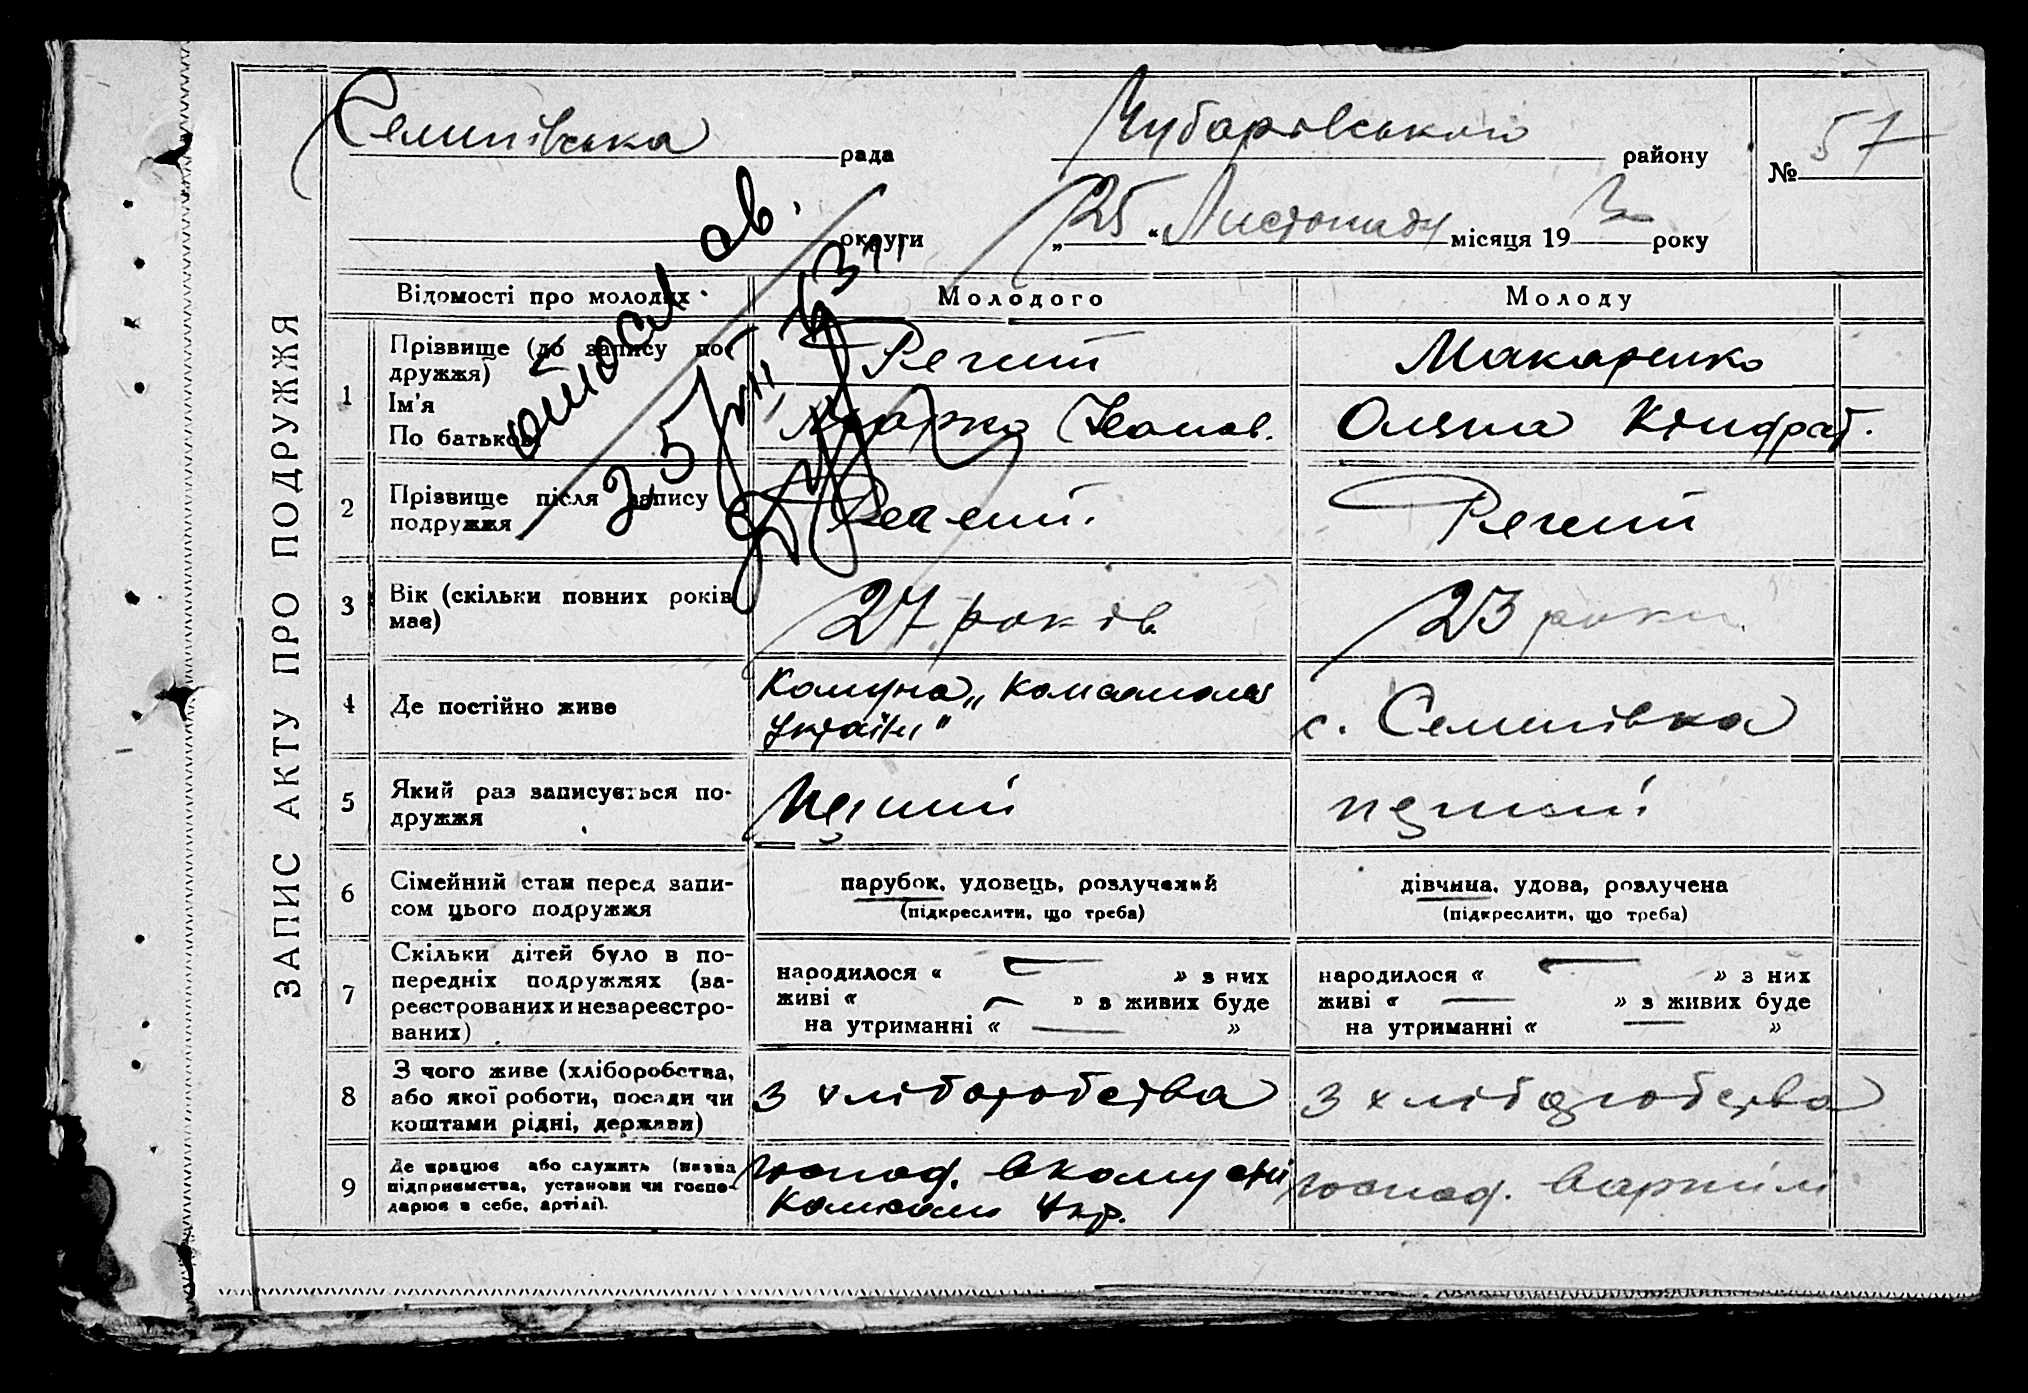 Семенівська рада Чубарівського району № 57
округи „25“ Листопаду місяця 193 року
ЗАПИС АКТУ ПРО ПОДРУЖЖЯ
Відомості про молодих Молодого Молоду
1 Прізвище (до запису по-
дружжя) Регент Макаренко
Ім'я
По батькові Марко Іванов. Оляна Кіндрат.
2 Прізвище після запису
подружжя
3 Вік (скільки повних років
має) 27 років 23 роки
4 Де постійно живе Комуна „Комсомолец
України" с. Семенівка
5 Який раз записується по-
дружжя перший перший
6 Сімейний стан перед запи-
сом цього подружжя
парубок, удовець, розлучений
(підкреслити, що треба)
дівчина, удова, розлучена
(підкреслити, що треба)
7 Скільки дітей було в по-
передніх подружжях (за-
реєстрованих и незареєстро-
ваних)
народилося « — » з них
живі « — » з живих буде
на утриманні « — »
народилося « — » з них
живі « — » з живих буде
на утриманні « — »
8 З чого живе (хліборобства,
або якої роботи, посади чи
коштами рідні, держави) з хліборобства з хліборобства
9 Де працює або служить (назва
підприємства, установи чи госпо-
дарює в себе, артілі).
господ. в комуні
Комсом Укр.
господ. в артілі